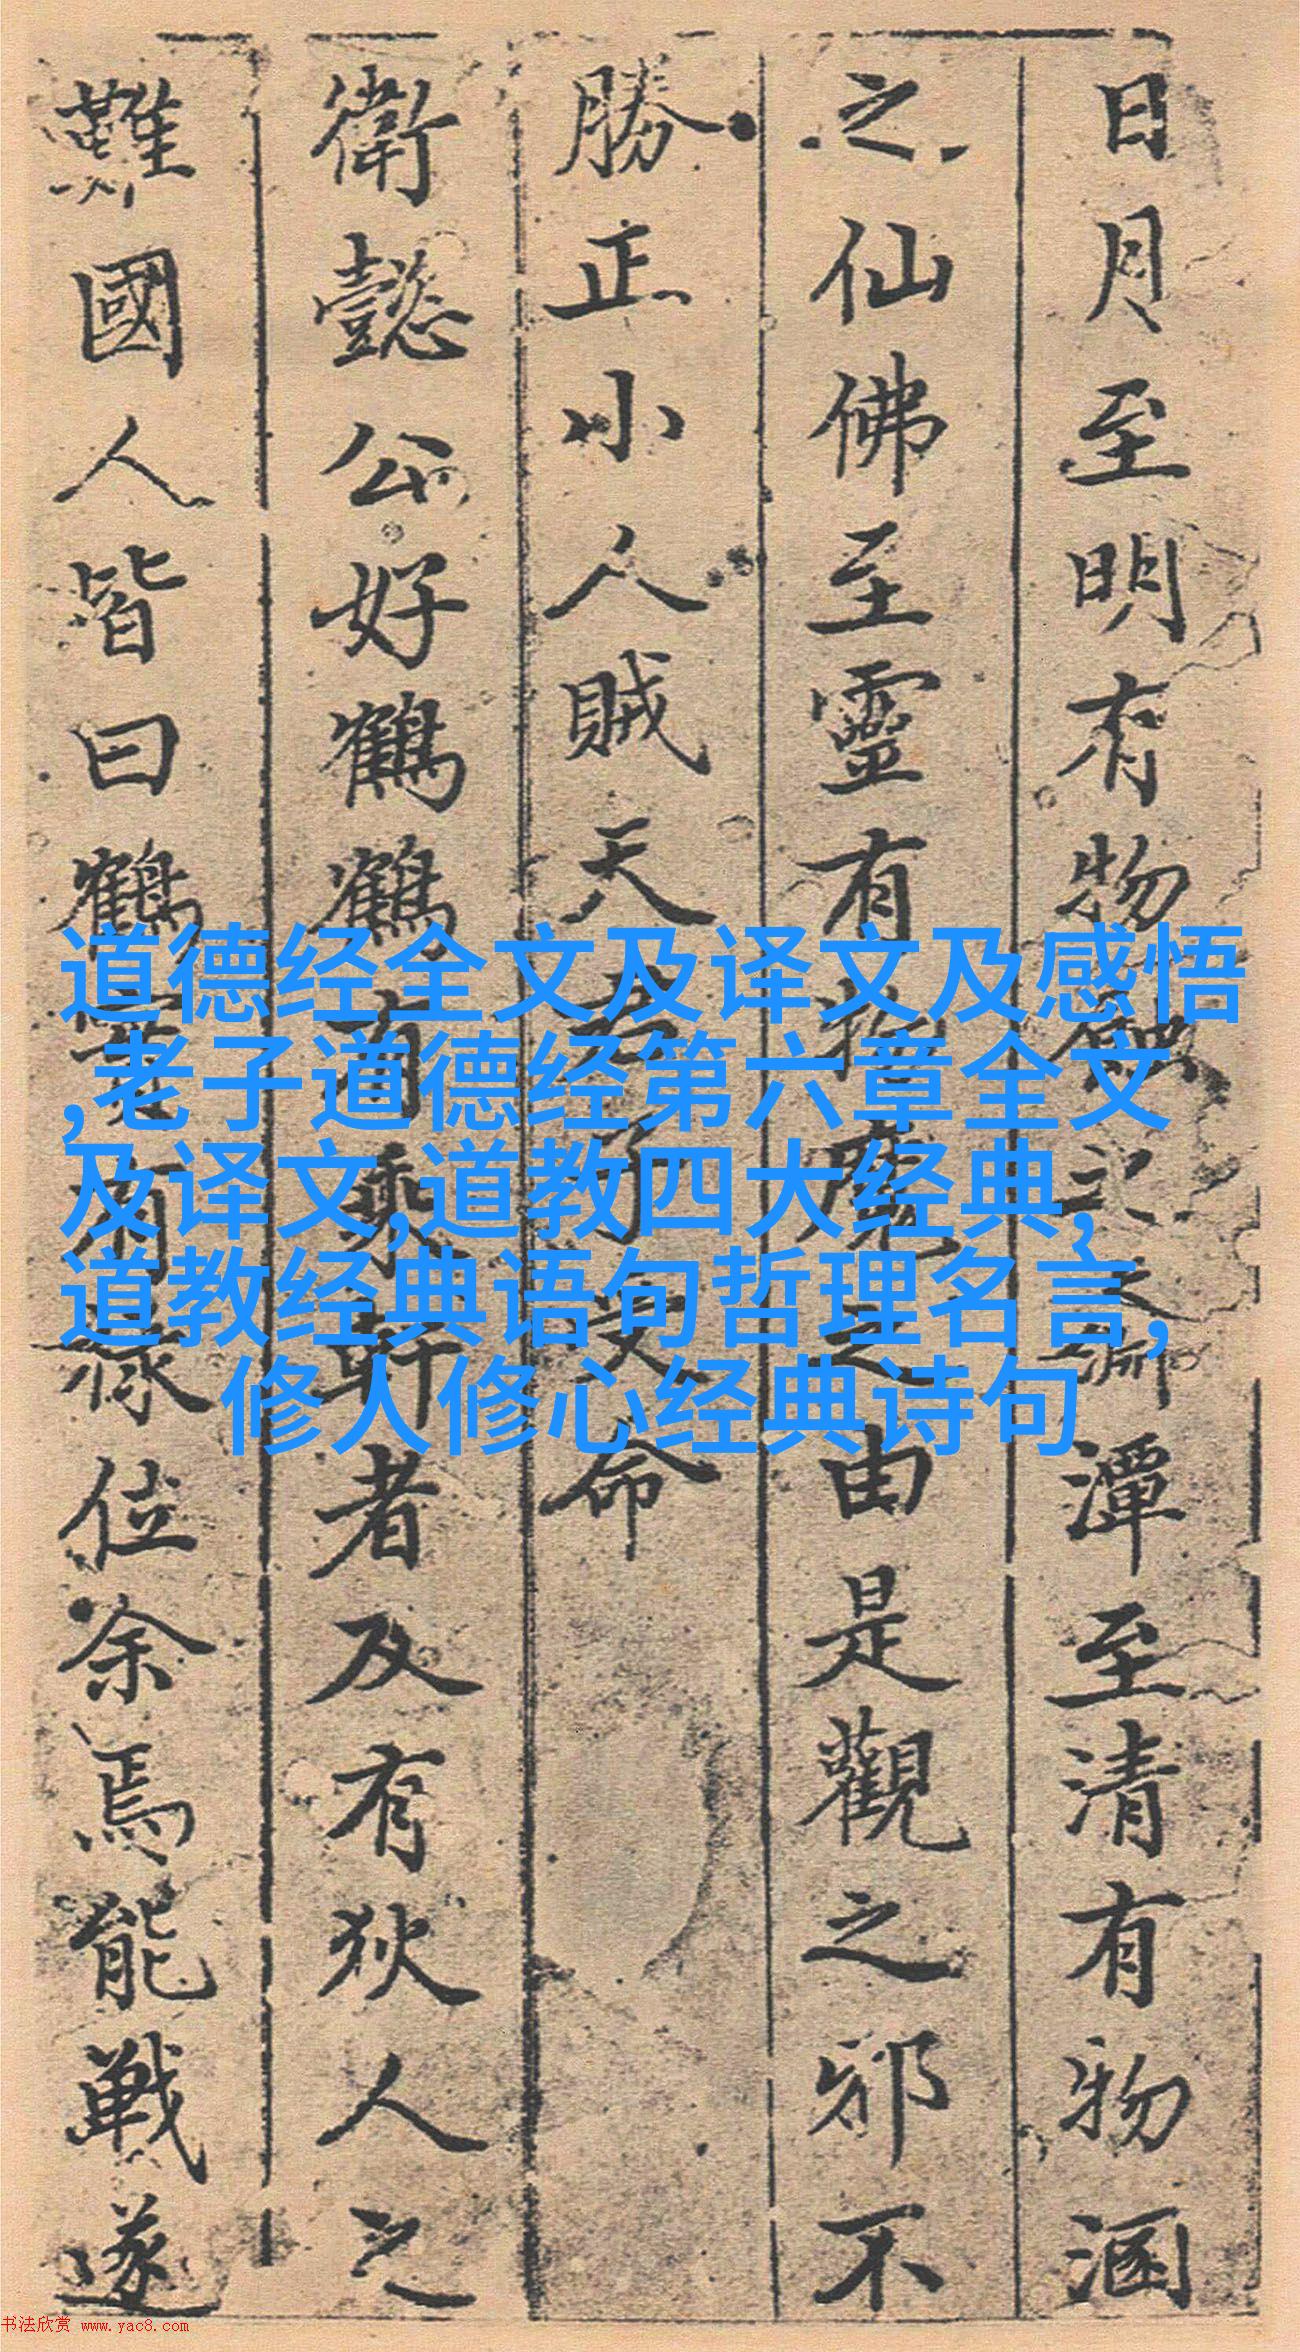 日月至明有物蝕之之淵潭至清有物涵
之仙佛至靈有之由是觀之邪不
勝正小人賊天受命
衛懿公好鶴鶴有乘軒者及有狄人之
難國人皆曰鶴實有祿位余焉能戰遂
道德经全文及译文及感悟
,老子道德经第六章全文
及译文,道教四大经典,
道教经典语句哲理名言,
修人修心经典诗句
书法欣赏 www.yac8.com